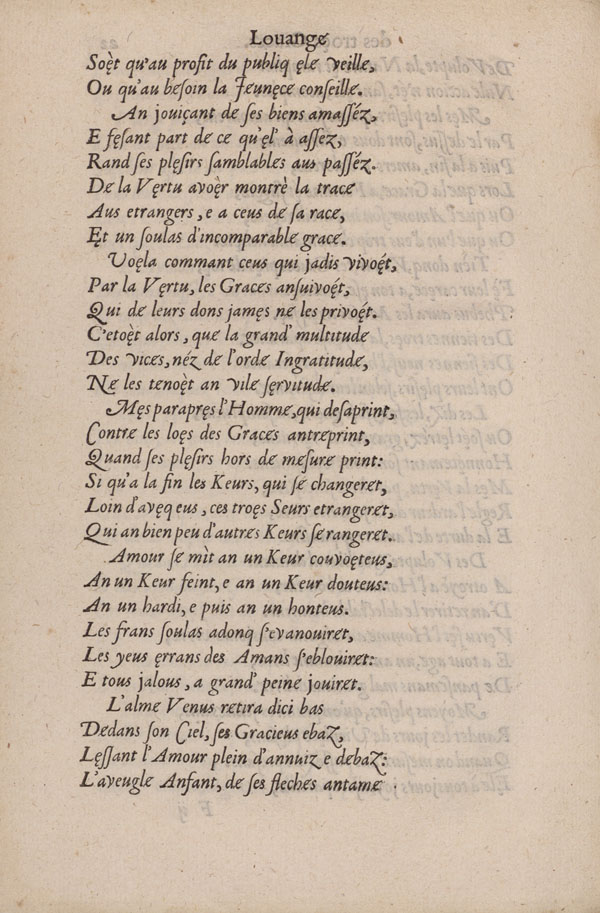 Louange
Soęt qu'au profit du publiq ęle veille,
Ou qu'au beſoin la Jeunęce conſeille.
An jouiçant de ſes biens amaſſéz,
E fęſant part de ce qu'ęl' à aſſez,
Rand ſes plęſirs ſamblables aus paſſéz.
De la Vęrtu avoęr montrè la trace
Aus etrangers, e a ceus de ſa race,
Et un ſoulas d'incomparable grace.
Voęla commant ceus qui jadis vivoę́t,
Par la Vęrtu, les Graces anſuivoę́t,
Qui de leurs dons jamęs ne les privoę́t.
C'etoęt alors, que la grand' multitude
Des vices, néz de l'orde Ingratitude,
Ne les tenoęt an vile ſęrvitude.
Męs parapręs l'Homme, qui deſaprint,
Contre les loęs des Graces antreprint,
Quand ſes plęſirs hors de meſure print:
Si qu'a la fin les Keurs, qui ſe changeret,
Loin d'avęq eus, ces troęs Seurs etrangeret,
Qui an bien peu d'autres Keurs ſe rangeret.
Amour ſe mìt an un Keur couvoęteus,
An un Keur feint, e an un Keur douteus:
An un hardi, e puis an un honteus.
Les frans ſoulas adonq s'evanouiret,
Les yeus ęrrans des Amans s'eblouiret:
E tous jalous, a grand' peine jouiret.
L'alme Venus retira dici bas
Dedans son Ciel, ſes Gracieus ebaz,
Lęſſant l'Amour plein d'annuiz e debaz:
L'aveugle Anfant, de ſes fleches antame